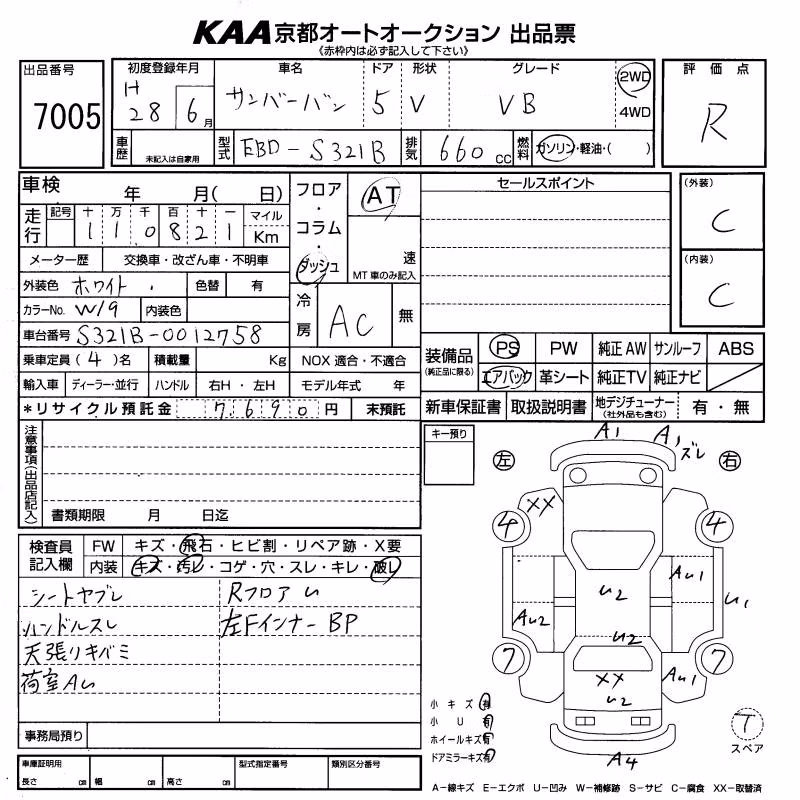 KAA 京都オートオークション 出品票
《赤枠内は必ず記入して下さい》
出品番号
7005
初度登録年月
H
28 6 月
車名
サンバーバン
ドア
5
形状
V
グレード
VB
2WD
4WD
評価点
R
車歴
未記入は自家用
型式
EBD-S321B
排気
660 cc
燃料
ガソリン・軽油・( )
車検 年 月( 日)
走行
記号 十 万 千 百 十 一
1 1 0 8 2 1
マイル
Km
フロア・コラム・ダッシュ
AT
速
MT車のみ記入
セールスポイント
(外装)
C
(内装)
C
メーター歴 交換車・改ざん車・不明車
外装色 ホワイト 色替 有
カラーNo. W19 内装色
冷房
AC
無
車台番号 S321B-0012758
乗車定員 (4)名 積載量 Kg NOX適合・不適合
輸入車 ディーラー・並行 ハンドル 右H・左H モデル年式 年
*リサイクル預託金 7,690円 未預託
装備品
(純正品に限る)
PS PW 純正AW サンルーフ ABS
エアバック 革シート 純正TV 純正ナビ
新車保証書 取扱説明書 地デジチューナー(社外品も含む) 有・無
注意事項(出品店記入)
書類期限 月 日迄
キー預り
A1
A1
ズレ
左
右
検査員記入欄
FW キズ・飛石・ヒビ割・リペア跡・X要
内装 キズ・汚レ・コゲ・穴・スレ・キレ・破レ
シートヤブレ
ハンドルスレ
天張リキバミ
荷室AU
RフロアU
左FインナーBP
XX
4
4
AU1
U1
U2
AU2
U2
7
7
XX
U2
AU1
A4
小キズ 有
小U 有
ホイールキズ 有
ドアミラーキズ 有
T
スペア
事務局預り
車庫証明用
長さ cm 幅 cm 高さ cm
型式指定番号
類別区分番号
A-線キズ E-エクボ U-凹み W-補修跡 S-サビ C-腐食 XX-取替済